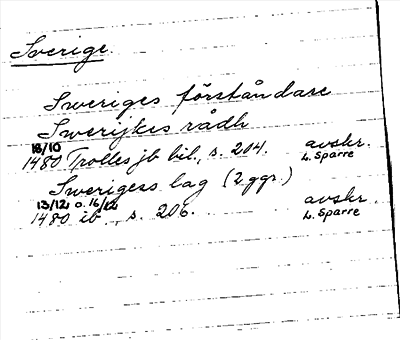 Sverige.
Sweriges förståndare
Swerijkis rådh
18/10
1480 Trolles jb bil., s. 204. avskr.
L. Sparre
Swerigess lag (2 ggr.)
13/12 o. 16/12
1480 ib., s. 206. avskr.
L. Sparre